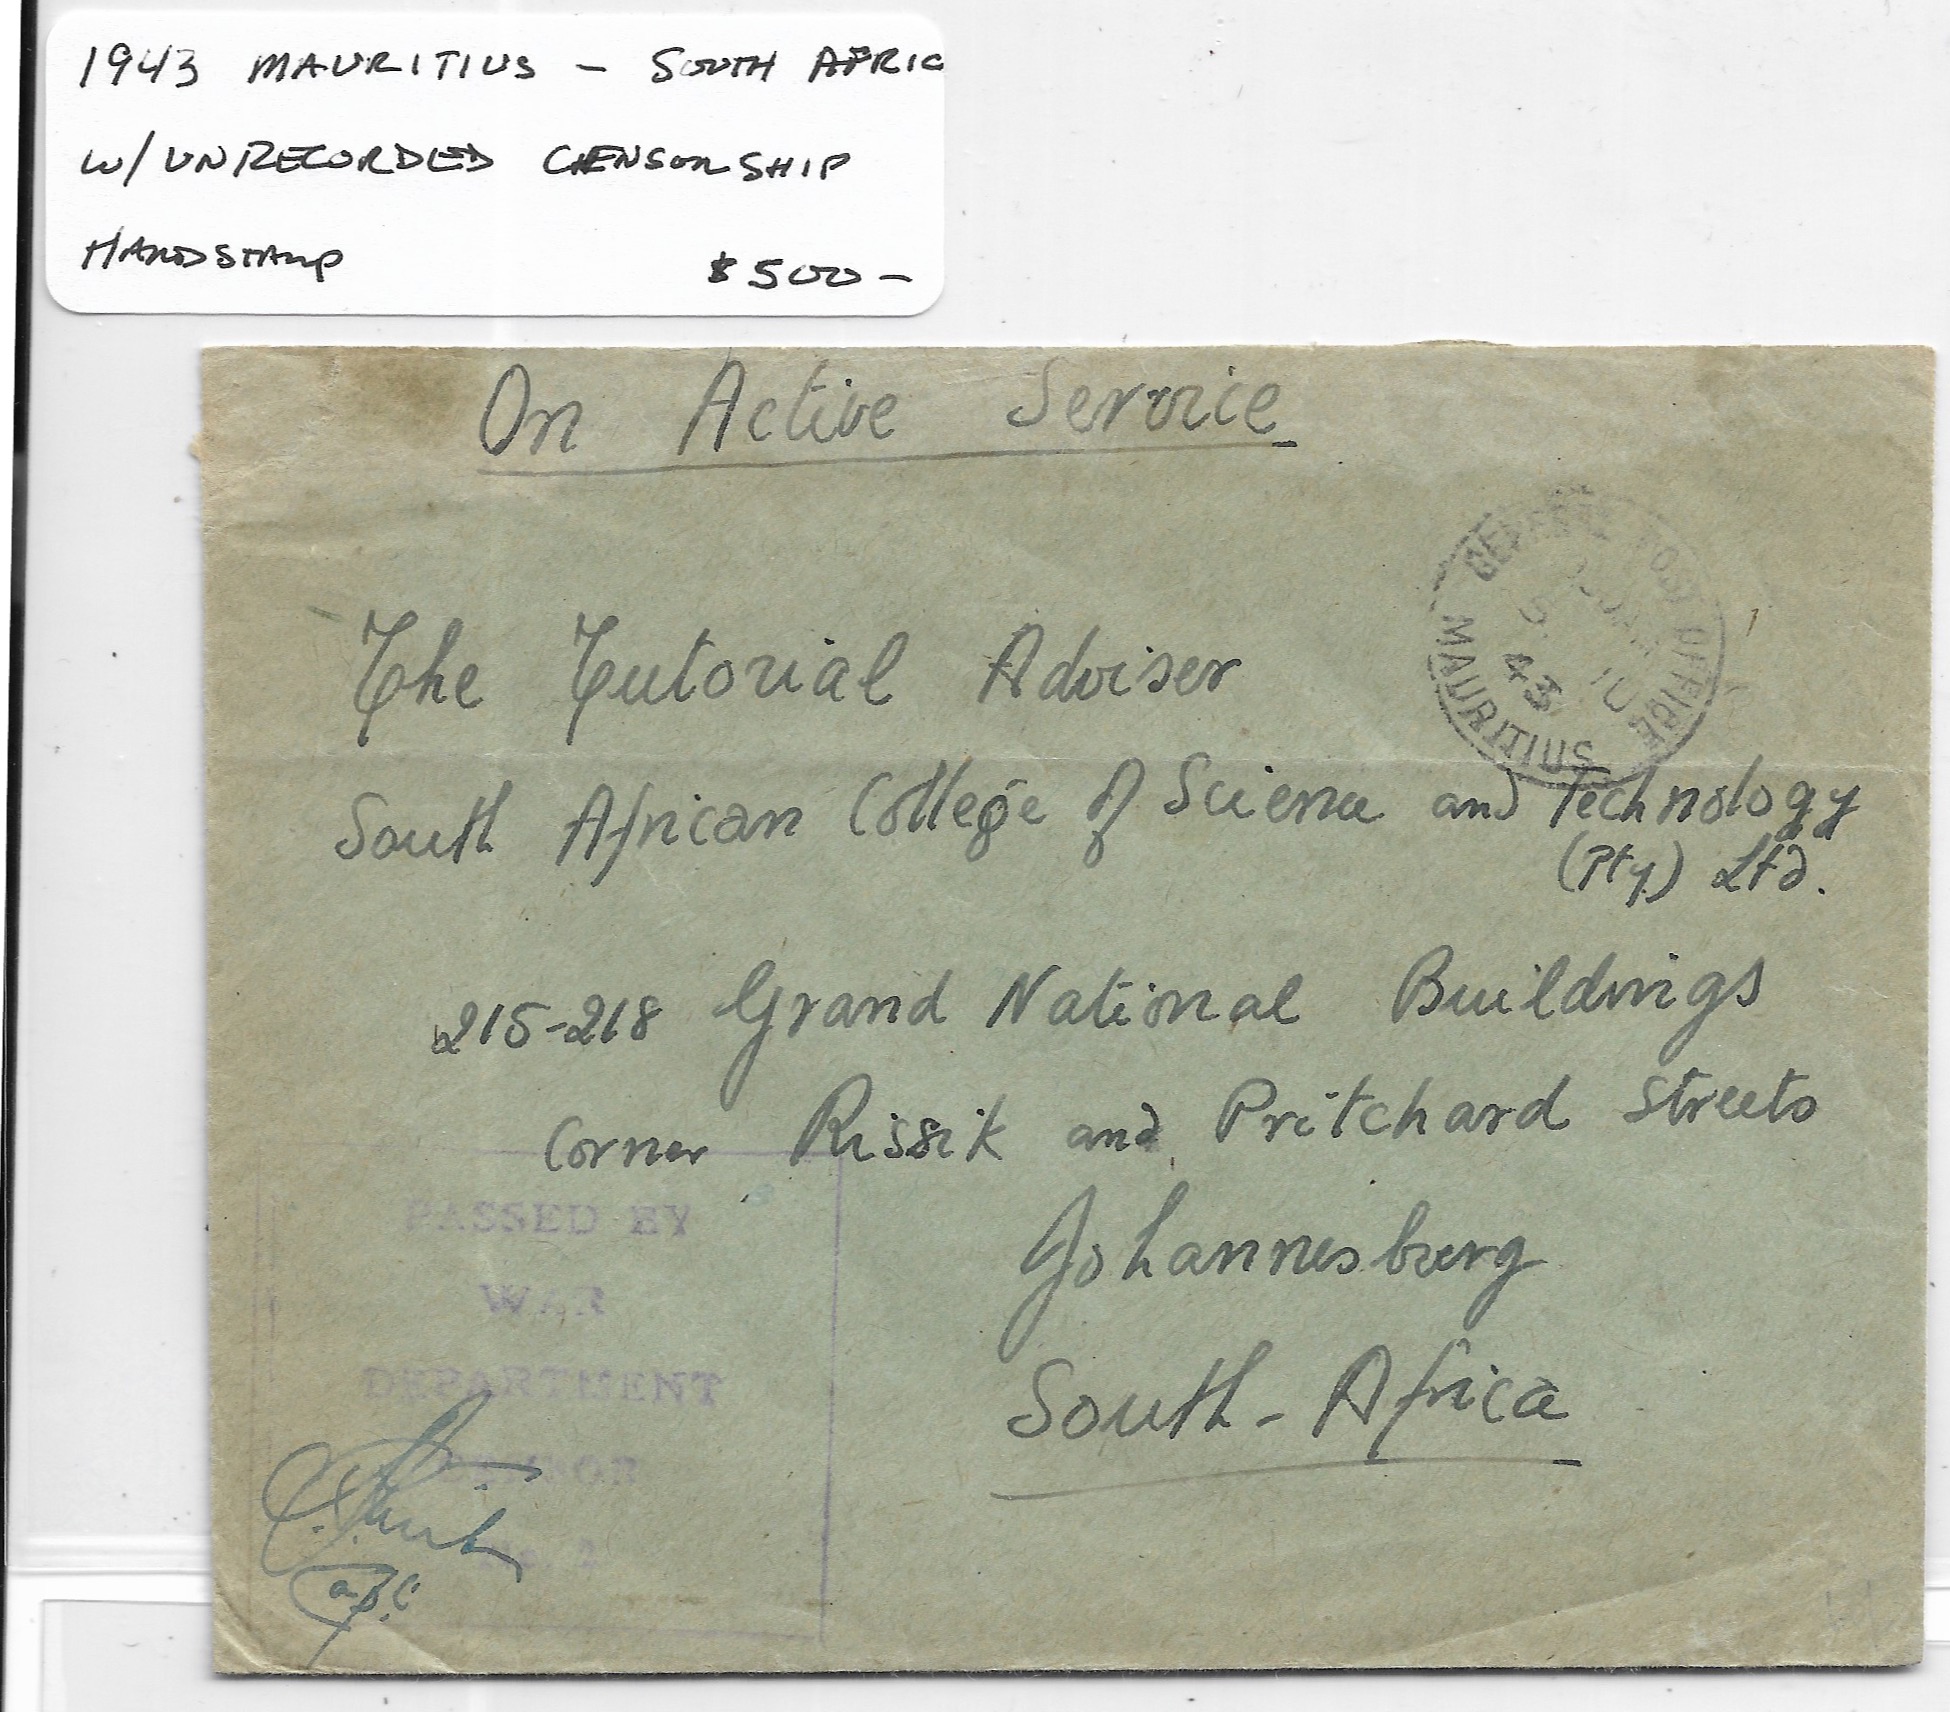 1943 MAURITIUS - SOUTH AFRIC
W/ UNRECORDED CENSORSHIP
HANDSTAMP $500-
On Active Service
GENERAL POST OFFICE
43 10
MAURITIUS
The Tutorial Adviser
South African College of Science and Technology
(Pty) Ltd.
215-218 Grand National Buildings
Corner Rissik and Pritchard Streets
Johannesburg
South-Africa
PASSED BY
WAR
DEPARTMENT
CENSOR